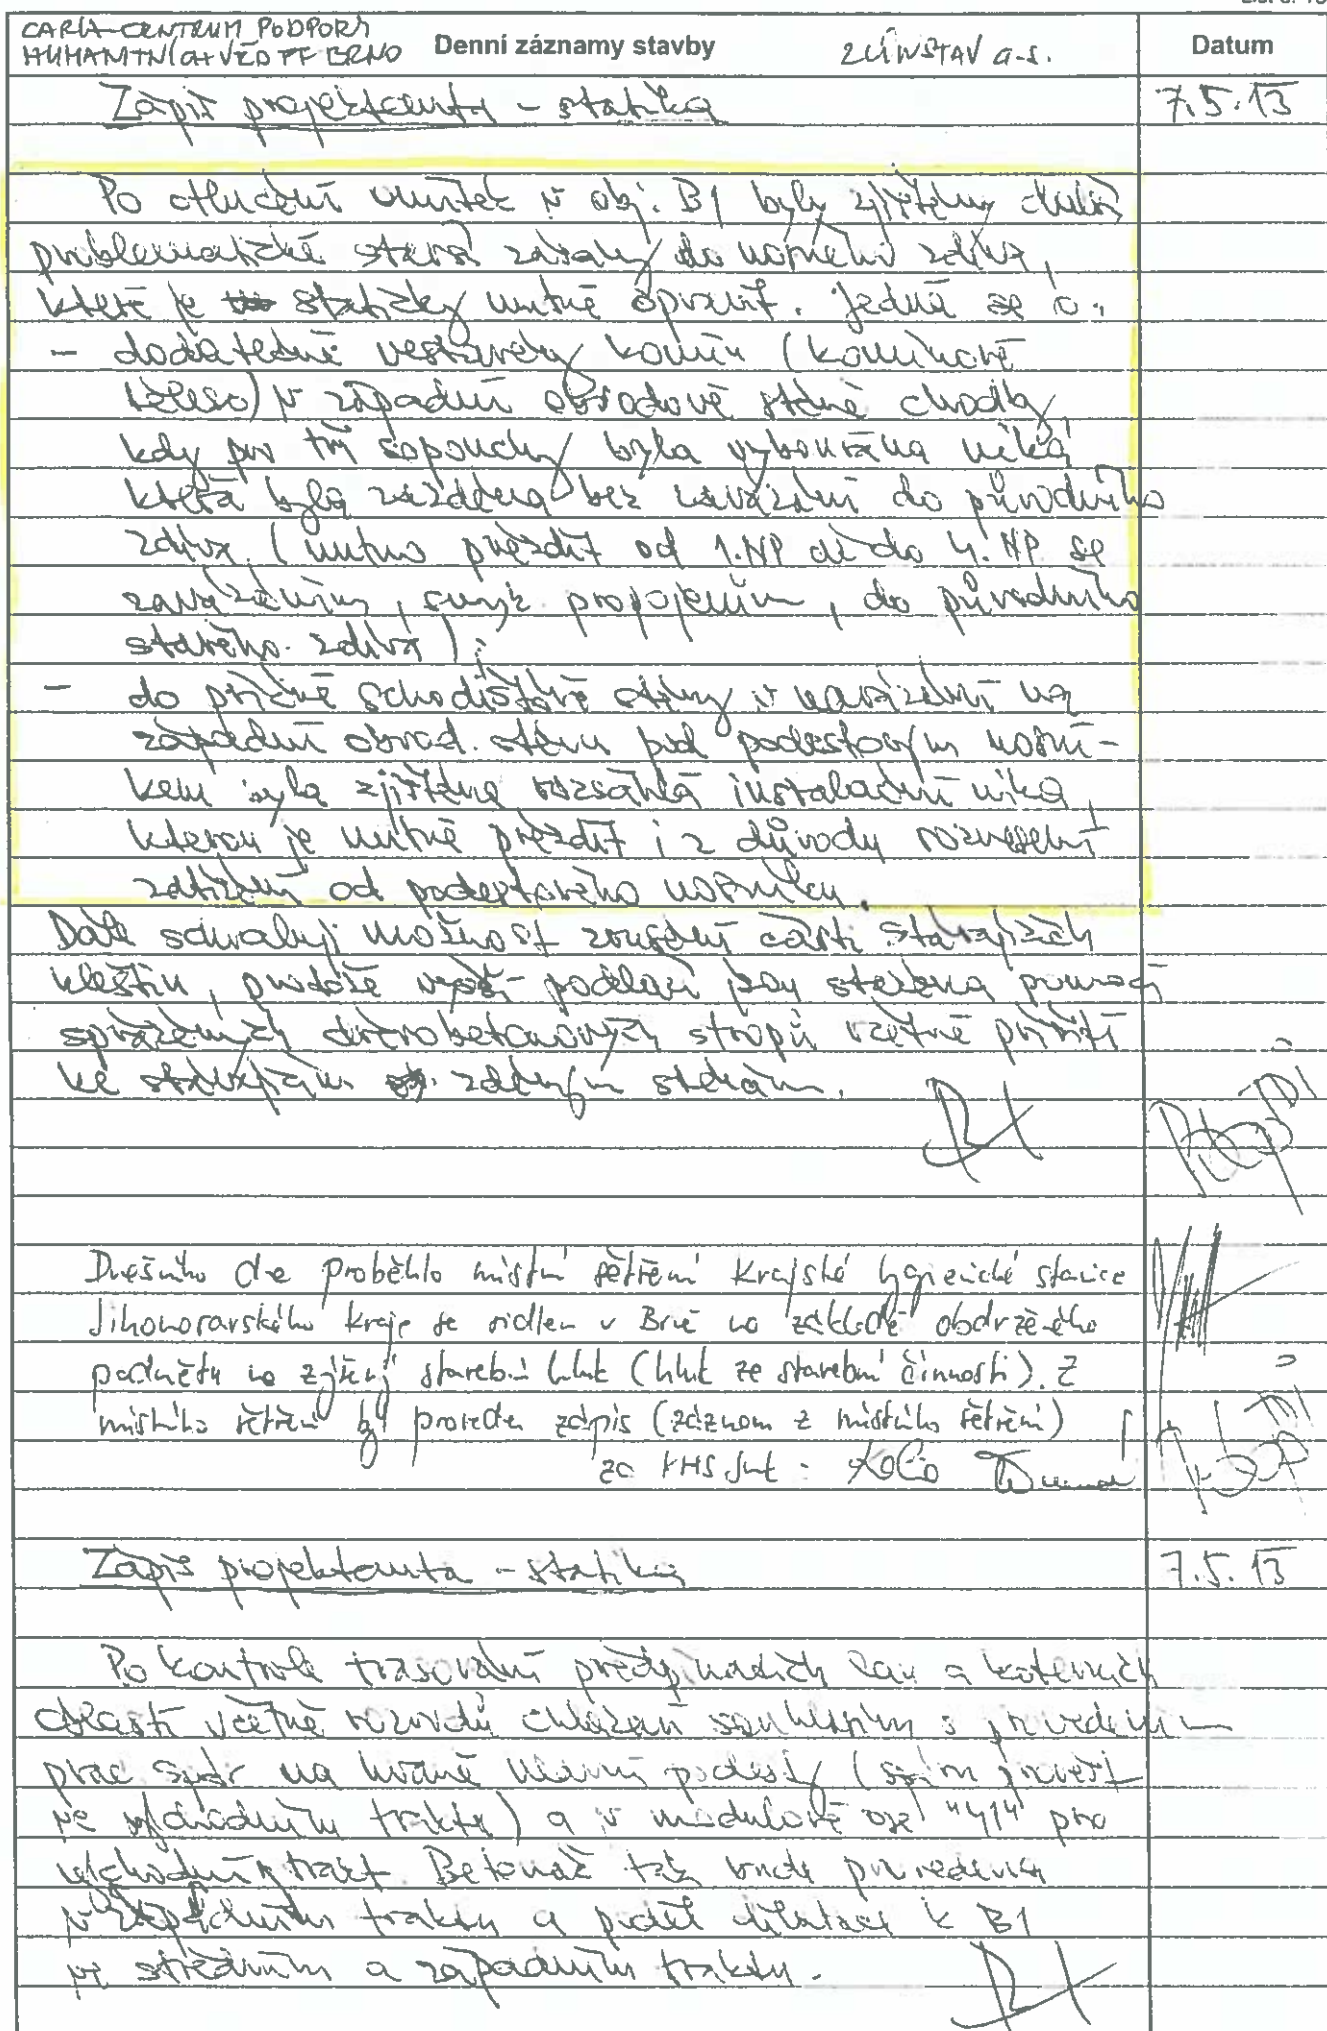 CARLA-CENTRUM PODPORY
HUMANITNÍCH VĚD FF BRNO Denní záznamy stavby ZLÍNSTAV a.s. Datum
Zápis projektanta - statika 7.5.13
Po otlučení omítek v obj. B1 byly zjištěny další
problematické staré zásahy do nosného zdiva,
které je staticky nutné opravit. Jedná se o:
- dodatečně vestavěný komín (komínové
těleso) v západní obvodové stěně chodby,
kdy pro tři sopouchy byla vybourána nika,
která byla zazděna bez zavázání do původního
zdiva. (nutno přezdít od 1.NP až do 4.NP se
zavázáním, propojením, do původního
starého zdiva);
- do příčné schodišťové stěny v navázání na
západní obvod. stěnu pod podestovým nosní-
kem byla zjištěna rozsáhlá instalační nika,
kterou je nutné přezdít i z důvodu roznesení
zatížení od podestového nosníku.
Dále schvaluji možnost zrušení části stávajících
kleštin, protože vyšší podlaží jsou stažena pomocí
spřažených dřevobetonových stropů včetně přikotvení
ke stávajícím zděným stěnám.
Dnešního dne proběhlo místní šetření Krajské hygienické stanice
Jihomoravského kraje se sídlem v Brně na základě obdrženého
podnětu na zvýšený stavební hluk (hluk ze stavební činnosti). Z
místního šetření byl proveden zápis (záznam z místního šetření)
za KHS JmK -
Zápis projektanta - statika 7.5.13
Po kontrole trasování předpínacích lan a kotevních
oblastí včetně rozvodů chlazení souhlasím s provedením
prac. spár na hraně hlavní podesty (
ve východním traktu) a v modulové ose "41" pro
východní trakt. Betonáž tak bude provedena
v západním traktu a podél dilatace k B1
ve středním a západním traktu.